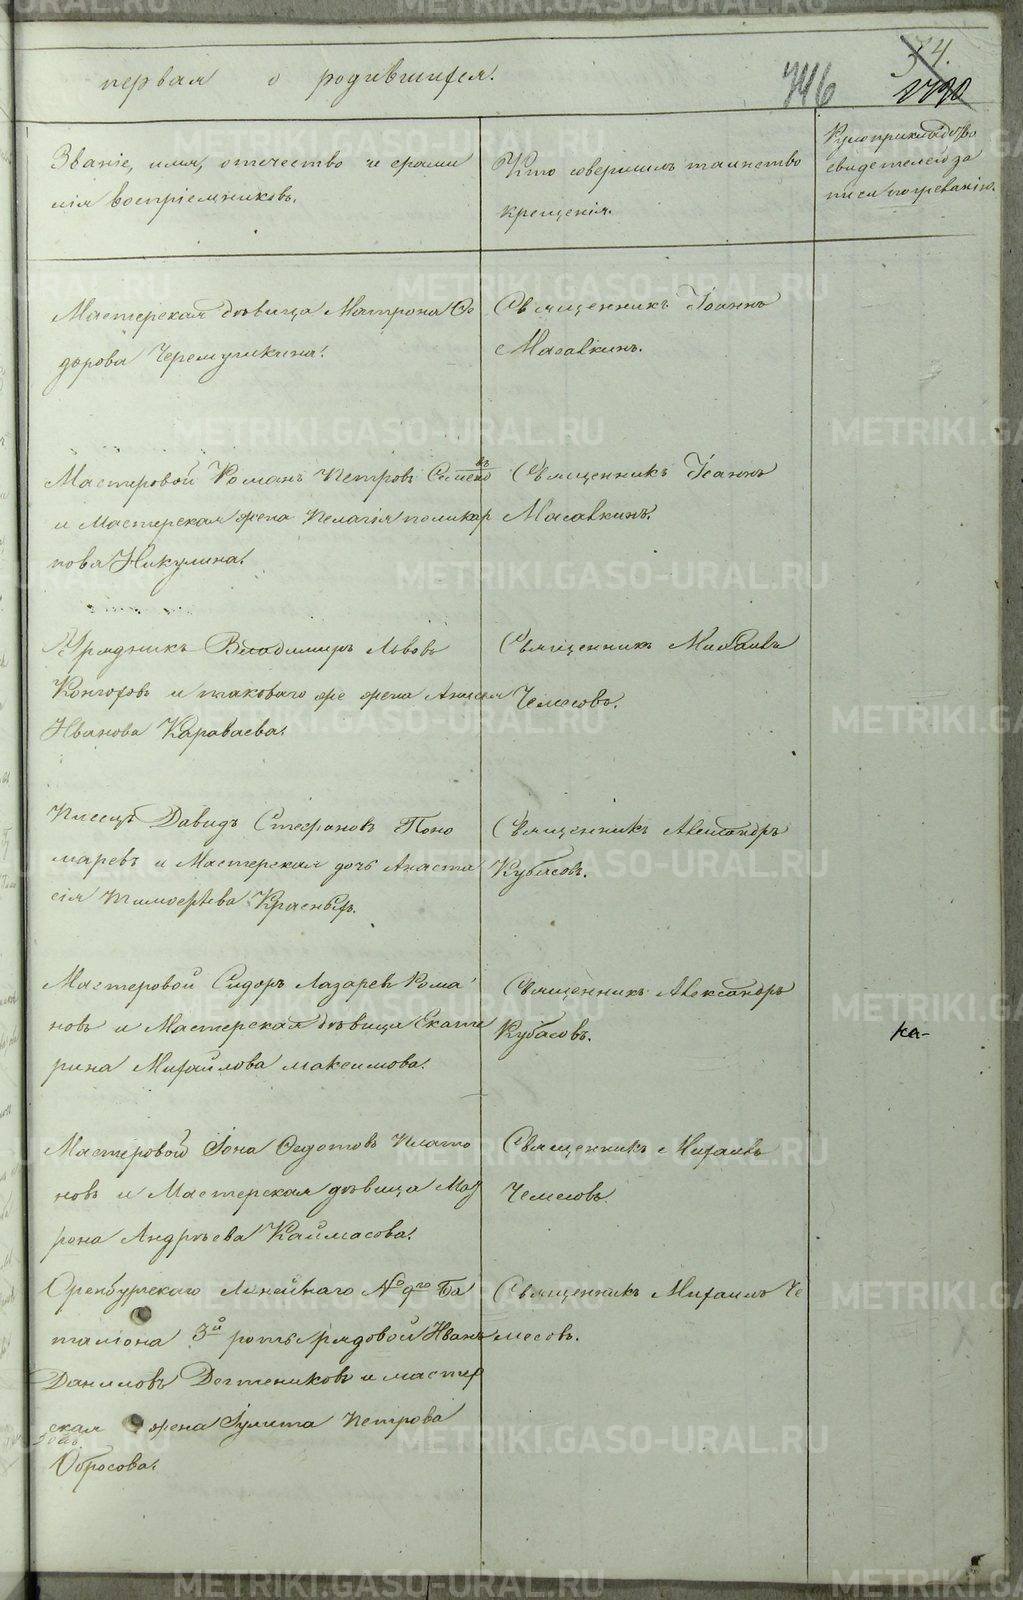 первая о родившихся.
746
34.
Званіе, имя, отчество и фами
лія воспріемниковъ.
Кто совершилъ таинство
крещенія.
Рукоприкладство
свидетелей за
писи по
Мастерская дѣвица Матрона Ѳе
дорова Черемушкина.
Священникъ Іоаннъ
Масавкинъ.
Мастеровой Романъ Петровъ Семено
въ
и Мастерская жена Пелагія Поликар
пова Никулина.
Священникъ Іоаннъ
Масавкинъ.
Урядникъ Владимиръ Львовъ
Конюховъ и таковаго же жена Анисия
Иванова Караваева.
Священникъ Михаилъ
Чемесовъ.
Писецъ Давидъ Стефановъ Поно
маревъ и Мастерская дочь Анаста
сія Тимофѣева Красныхъ.
Священникъ Александръ
Кубасовъ.
Мастеровой Сидоръ Лазаревъ Рома
новъ и Мастерская дѣвица Екате
рина Михайлова Максимова.
Священникъ Александръ
Кубасовъ.
Мастеровой Іона Ѳедотовъ Плато
новъ и Мастерская дѣвица Мат
рона Андрѣева Каймасова.
Священникъ Михаилъ
Чемесовъ.
Оренбургскаго Линейнаго № 9го Ба
таліона 3й роты рядовой Иванъ
Даниловъ Дегтениковъ и мастер
ская жена Іулита Петрова
Обросова.
Священникъ Михаилъ Че
месовъ.
METRIKI.GASO-URAL.RU